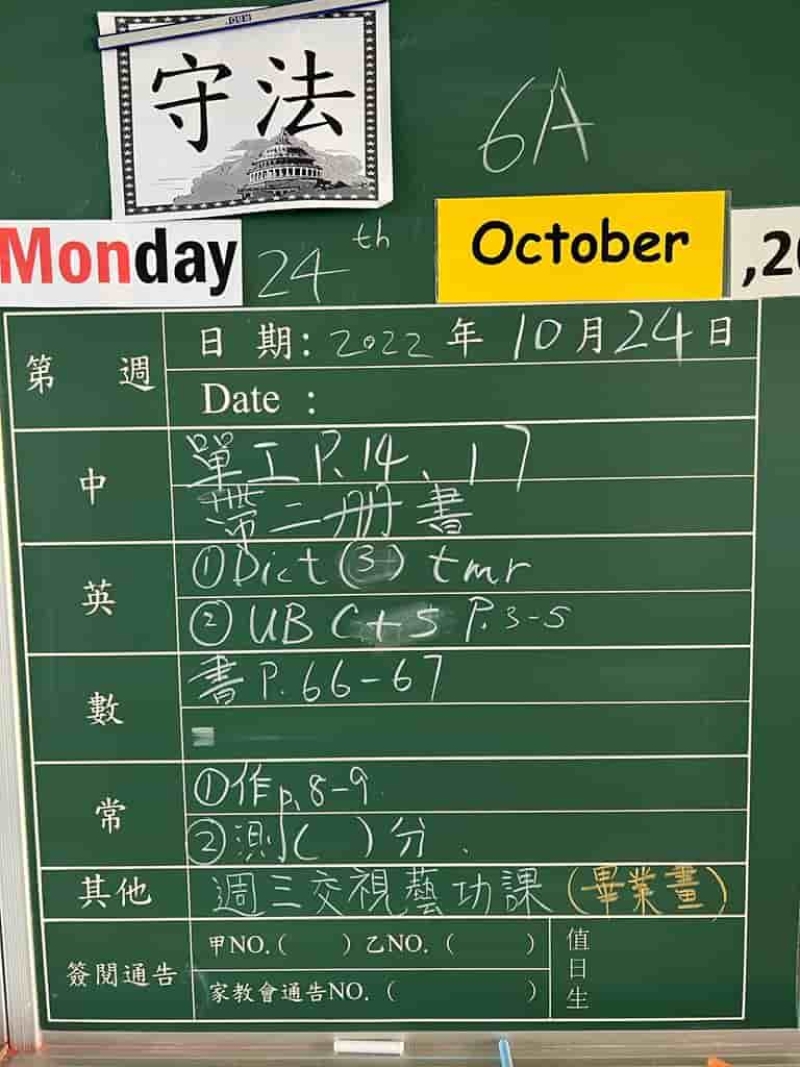 守法
6A
Monday 24th October ,20
第 週
日 期: 2022 年 10月24日
Date :
中
單工 P.14、17
帶二冊書
英
①Dict (3) tmr
②UB C+S P.3-5
數
書P.66-67
常
①作p.8-9
②測( )分
其他
週三交視藝功課(畢業畫)
簽閱通告
甲NO.( ) 乙NO.( )
家教會通告NO.( )
值日生